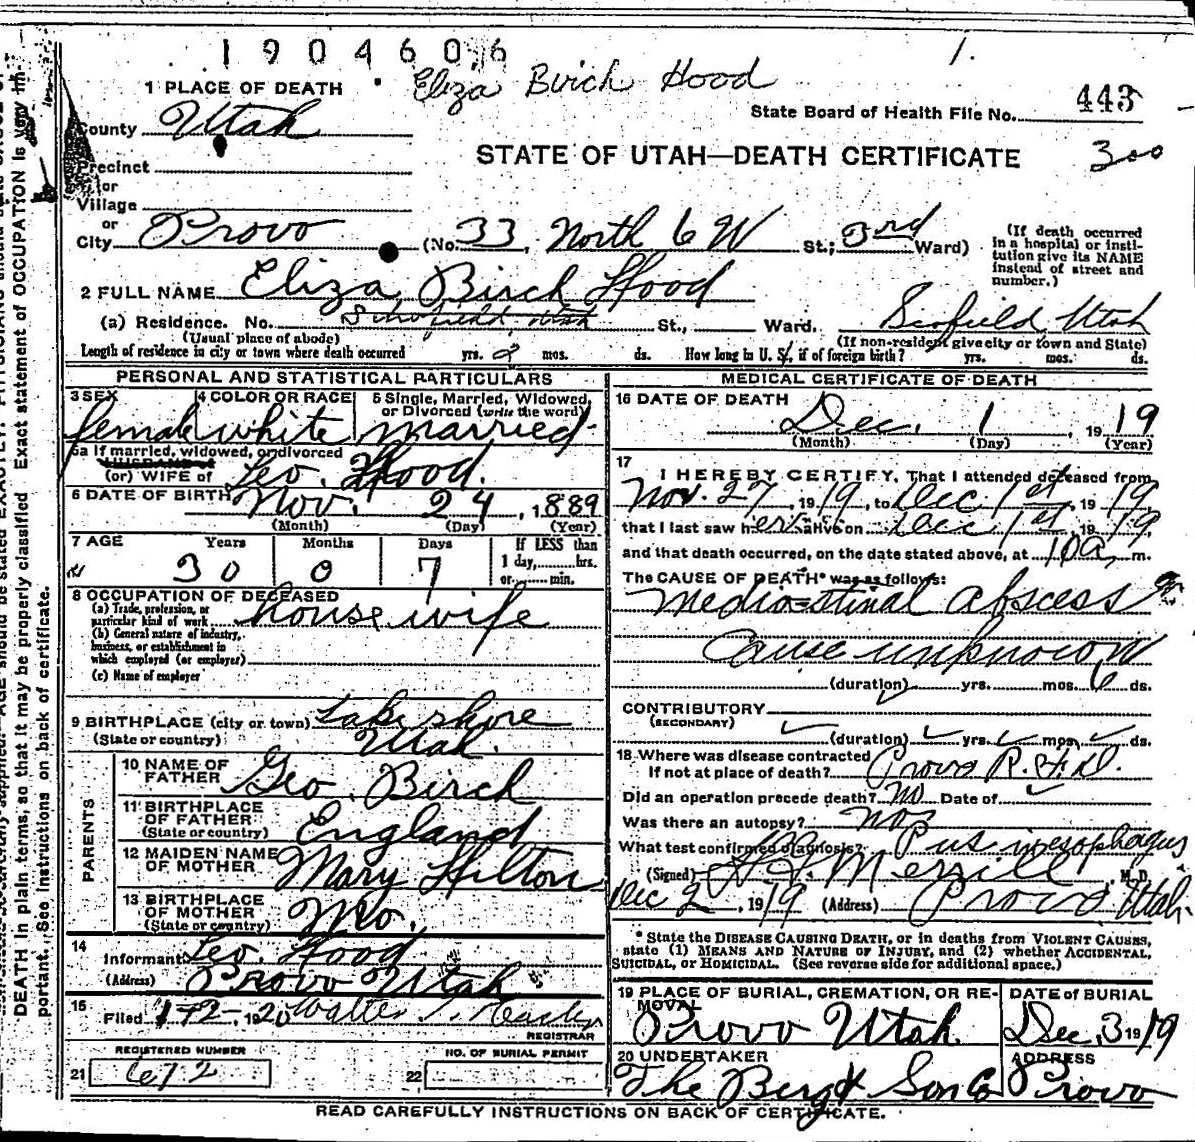 1904606
Eliza Birch Hood
1.
1 PLACE OF DEATH
State Board of Health File No. 443
County Utah
STATE OF UTAH—DEATH CERTIFICATE
300
Precinct
or
Village
or
City Provo (No. 33, North 6 W St.; 3rd Ward)
(If death occurred in a hospital or institution give its NAME instead of street and number.)
2 FULL NAME Eliza Birch Hood
(a) Residence. No. Schofield, Utah St., Ward. Scofield Utah
(Usual place of abode) (If non-resident give city or town and State)
Length of residence in city or town where death occurred yrs. 2 mos. ds. How long in U. S., if of foreign birth? yrs. mos. ds.
PERSONAL AND STATISTICAL PARTICULARS
3 SEX 4 COLOR OR RACE 5 Single, Married, Widowed, or Divorced (write the word)
female white married
5a If married, widowed, or divorced
HUSBAND of
(or) WIFE of Geo. Hood.
6 DATE OF BIRTH Nov. 24, 1889
(Month) (Day) (Year)
7 AGE Years Months Days If LESS than 1 day, hrs. or min.
30 0 7
8 OCCUPATION OF DECEASED
(a) Trade, profession, or particular kind of work housewife
(b) General nature of industry, business, or establishment in which employed (or employer)
(c) Name of employer
9 BIRTHPLACE (city or town) Lake shore
(State or country) Utah.
PARENTS
10 NAME OF FATHER Geo. Birch
11 BIRTHPLACE OF FATHER (State or country) England
12 MAIDEN NAME OF MOTHER Mary Hilton
13 BIRTHPLACE OF MOTHER (State or country) Mo.
14 Informant Geo. Hood
(Address) Provo Utah
15 Filed 1-2-, 1920 Walter T.
REGISTRAR
REGISTERED NUMBER
21 672
NO. OF BURIAL PERMIT
22
MEDICAL CERTIFICATE OF DEATH
16 DATE OF DEATH
Dec. 1, 1919
(Month) (Day) (Year)
17
I HEREBY CERTIFY, That I attended deceased from
Nov. 27, 1919, to Dec 1st, 1919,
that I last saw her alive on Dec 1st, 1919,
and that death occurred, on the date stated above, at 10 a, m.
The CAUSE OF DEATH* was as follows:
Mediastinal abscess
Cause unknown
(duration) yrs. mos. 6 ds.
CONTRIBUTORY
(SECONDARY)
(duration) yrs. mos. ds.
18 Where was disease contracted
If not at place of death? Provo R.F.D.
Did an operation precede death? no Date of
Was there an autopsy? no
What test confirmed diagnosis? Pus in esophagus
(Signed) Merrill, M. D.
Dec 2, 1919 (Address) Provo Utah.
* State the DISEASE CAUSING DEATH, or in deaths from VIOLENT CAUSES,
state (1) MEANS AND NATURE OF INJURY, and (2) whether ACCIDENTAL,
SUICIDAL, or HOMICIDAL. (See reverse side for additional space.)
19 PLACE OF BURIAL, CREMATION, OR REMOVAL
Provo Utah.
DATE of BURIAL
Dec. 3 1919
20 UNDERTAKER
The Berg & Son Co
ADDRESS
Provo
READ CAREFULLY INSTRUCTIONS ON BACK OF CERTIFICATE.
DEATH in plain terms, so that it may be properly classified. Exact statement of OCCUPATION is very im-
portant. See instructions on back of certificate.